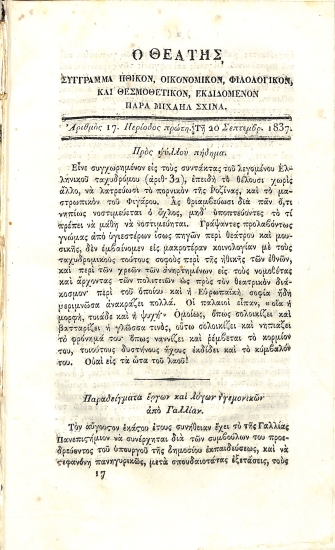 Ο ΘΕΑΤΗΣ
ΣΥΓΓΡΑΜΜΑ ΗΘΙΚΟΝ, ΟΙΚΟΝΟΜΙΚΟΝ, ΦΙΛΟΛΟΓΙΚΟΝ,
ΚΑΙ ΘΕΣΜΟΘΕΤΙΚΟΝ, ΕΚΔΙΔΟΜΕΝΟΝ
ΠΑΡΑ ΜΙΧΑΗΛ ΣΧΙΝΑ.
Ἀριθμὸς 17. Περίοδος πρώτη. Τῇ 20 Σεπτεμβρ. 1837.
Πρὸς ψύλλου πήδημα.
Εἶνε συγχωρημένον εἰς τοὺς συντάκτας τοῦ λεγομένου Ἑλ-
ληνικοῦ ταχυδρόμου (ἀριθ. 32), ἐπειδὴ τὸ θέλουσι χωρὶς
ἄλλο, νὰ λατρεύωσι τὸ πορνικὸν τῆς Ῥοζίνας, καὶ τὸ μα-
στρωπικὸν τοῦ Φιγάρου. Ἂς θριαμβεύωσι διὰ πᾶν ὅ,τι
νηπίως νοστιμεύεται ὁ ὄχλος, μηδ' ὑποπτεύοντες τὸ τί
πρέπει νὰ μάθῃ νὰ νοστιμεύηται. Γράψαντες προλαβόντως
γνώμας ἀπὸ ὑγιεστέρων ἴσως πηγῶν περὶ θεάτρου καὶ μου-
σικῆς, δὲν ἐμβαίνομεν εἰς μακροτέραν κοινολογίαν μὲ τοὺς
ταχυδρομικοὺς τούτους σοφοὺς περὶ τῆς ἠθικῆς τῶν ἐθνῶν,
καὶ περὶ τῶν χρεῶν τῶν ἀνηρτημένων εἰς τοὺς νομοθέτας
καὶ ἄρχοντας τῶν πολιτειῶν ὡς πρὸς τὸν θεατρικὸν διά-
κοσμον· περὶ τοῦ ὁποίου καὶ ἡ Εὐρωπαϊκὴ σοφία ἤδη
μεριμνῶσα ἀνακράζει πολλά. Οἱ παλαιοὶ εἶπαν, «οἵα ἡ
μορφὴ, τοιάδε καὶ ἡ ψυχή·» Ὁμοίως, ὅπως σολοικίζει καὶ
βατταρίζει ἡ γλῶσσα τινὸς, οὕτω σολοικίζει καὶ νηπιάζει
τὸ φρόνημά του· ὅπως ναννίζει καὶ ῥέμβεται τὸ κορμίον
του, τοιούτους δυστήνους ἤχους ἐκδίδει καὶ τὸ κύμβαλόν
του. Οὐαὶ εἰς τὰ ὦτα τοῦ λαοῦ!
Παραδείγματα ἔργων καὶ λόγων ἡγεμονικῶν
ἀπὸ Γαλλίαν.
Τὸν αὔγουστον ἑκάστου ἔτους συνήθειαν ἔχει τὸ τῆς Γαλλίας
Πανεπιστήμιον νὰ συνέρχηται διὰ τῶν συμβούλων του προε-
δρεύοντος τοῦ ὑπουργοῦ τῆς δημοσίου ἐκπαιδεύσεως, καὶ νὰ
στεφανόνῃ πανηγυρικῶς, μετὰ σπουδαιοτάτας ἐξετάσεις, τοὺς
17